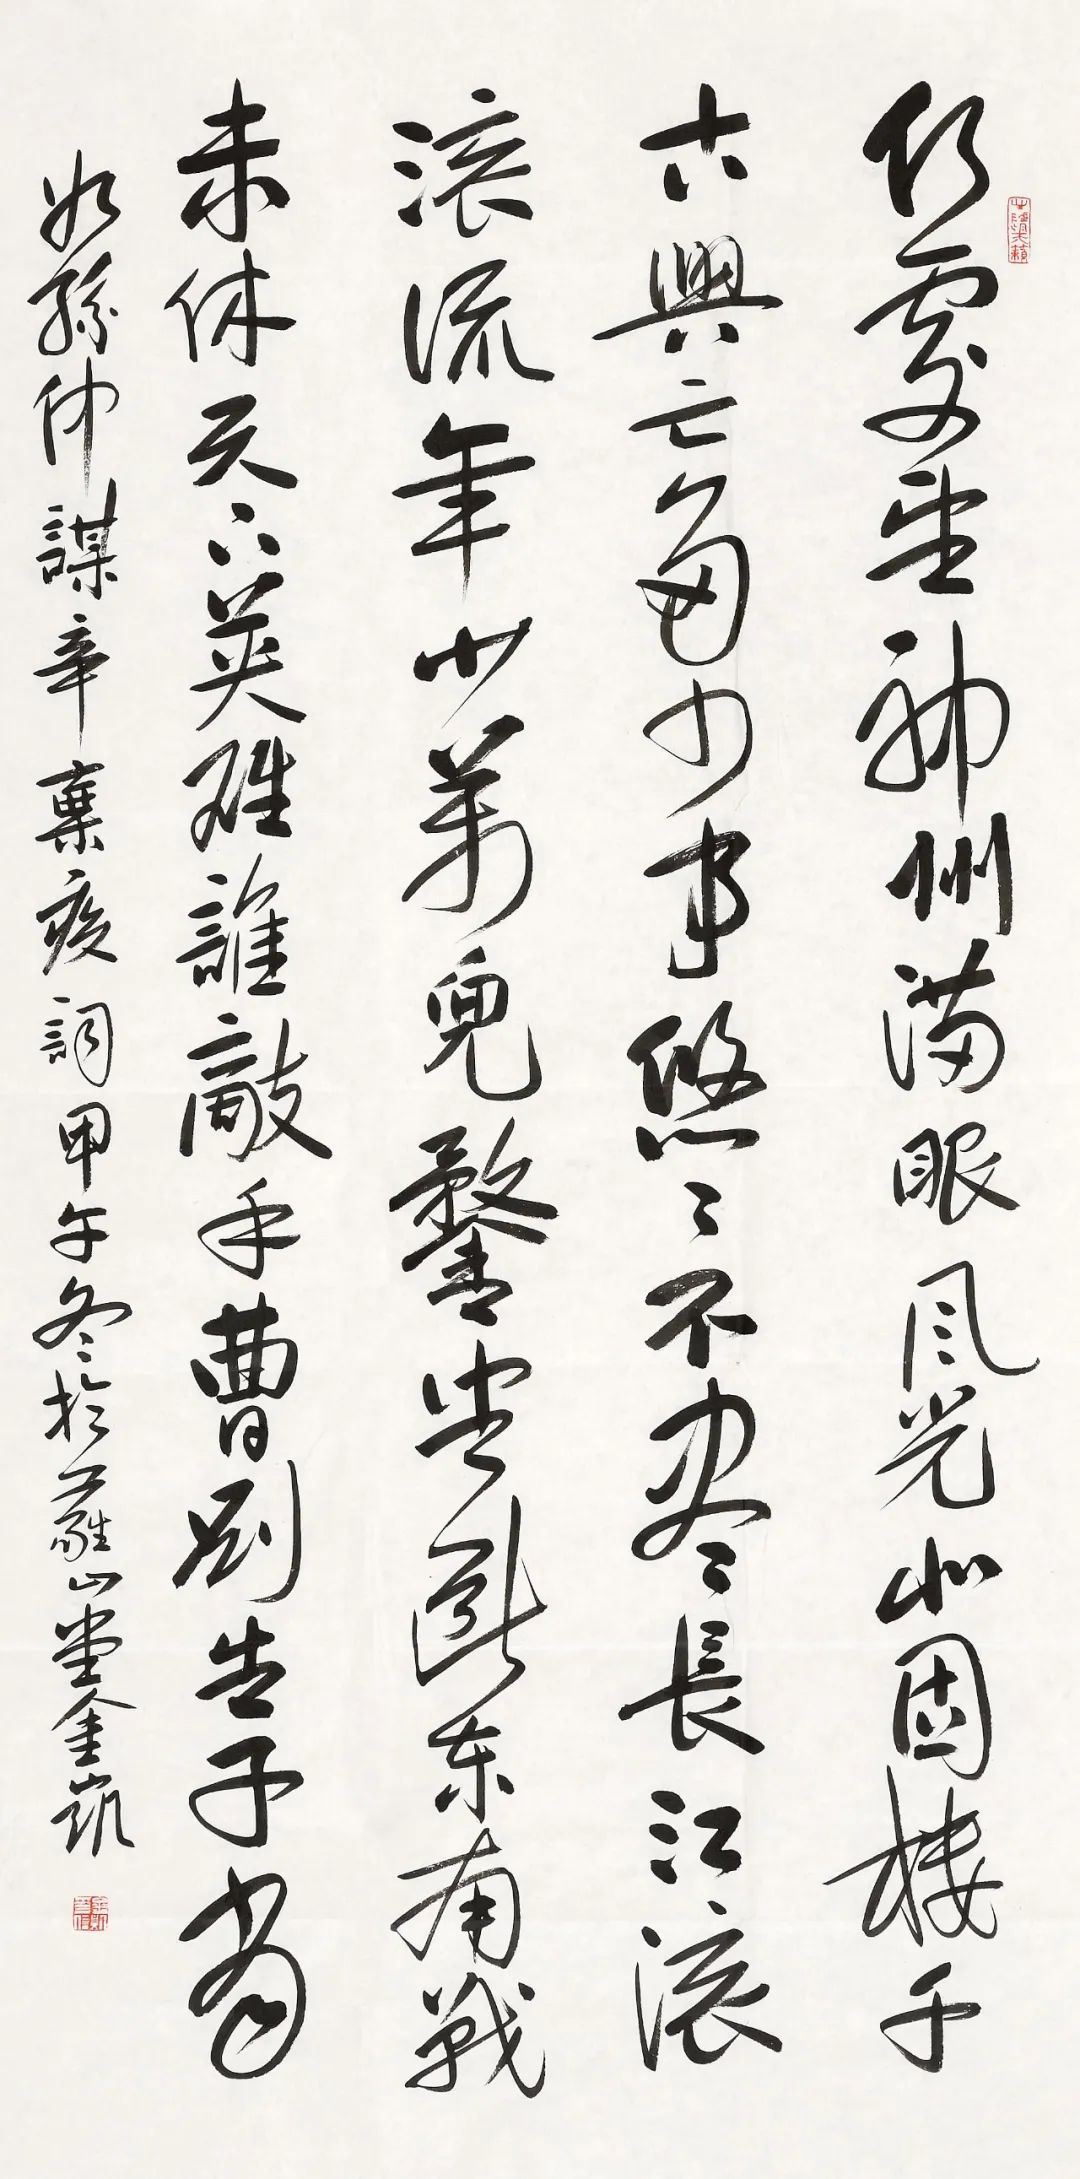 何處望神州滿眼風光北固樓千
古興亡多少事悠〻不盡長江滚
滚流年少萬兜鍪坐斷东南戰
未休天下英雄誰敵手曹劉生子當
如孫仲謀辛棄疾詞甲午冬於蘿山堂金凱